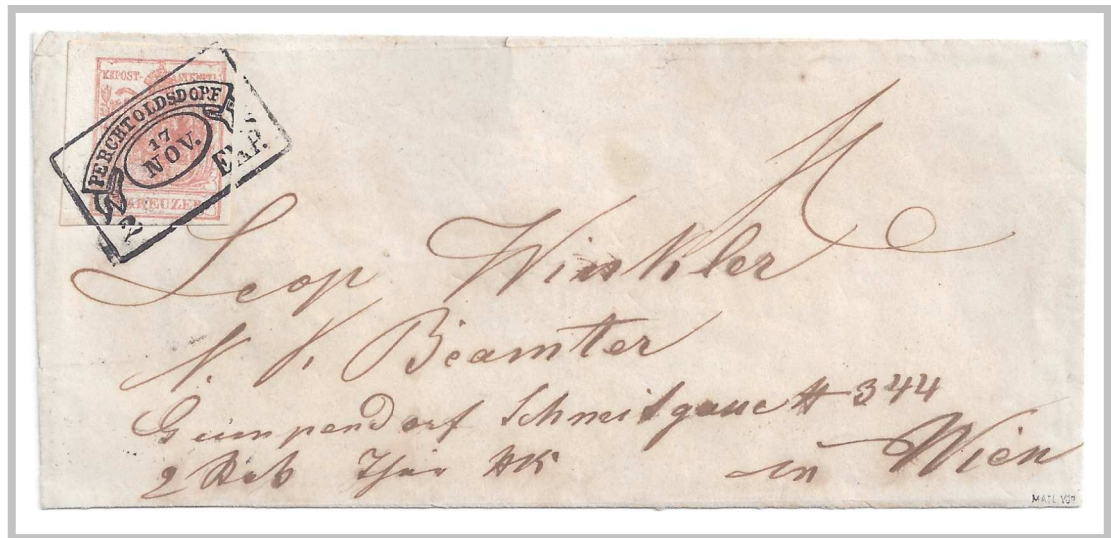 KKPOST-STEMPEL
PERCHTOLDSDORF
17
NOV.
EXP.
KREUZER
Leop Winkler
K. K. Beamter
Gumpendorf Schmidgasse # 344
2 Thür
in Wien